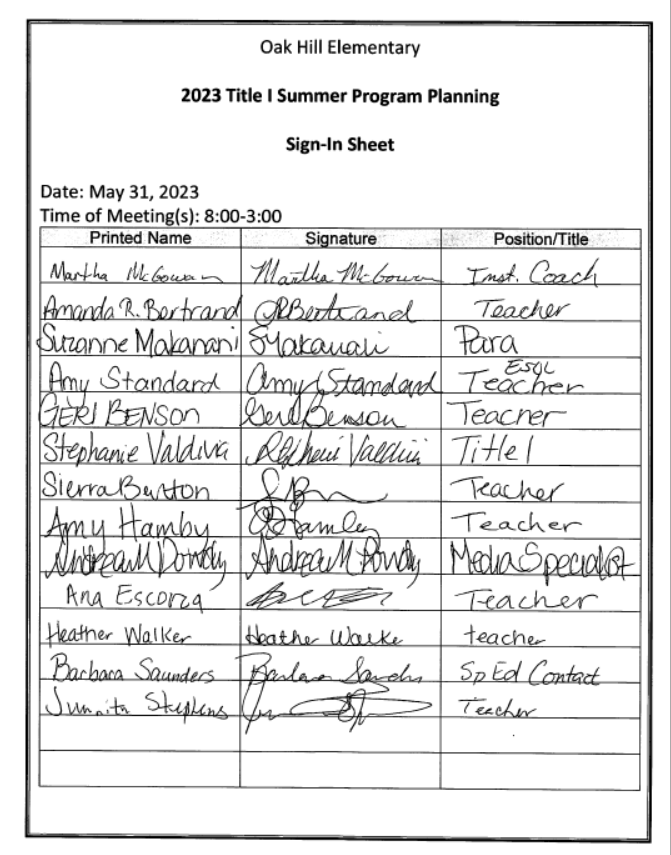 Oak Hill Elementary
2023 Title I Summer Program Planning
Sign-In Sheet
Date: May 31, 2023
Time of Meeting(s): 8:00-3:00
Printed Name Signature Position/Title
Martha McGowan Martha McGowan Inst. Coach
Amanda R. Bertrand ARBertrand Teacher
Suzanne Makanani SMakanani Para
ESOL
Amy Standard Amy Standard Teacher
GERI BENSON Geri Benson Teacher
Stephanie Valdivia Stephanie Valdivia Title I
Sierra Burton Teacher
Amy Hamby Teacher
Andrea M Dowdy Andrea M Dowdy Media Specialist
Ana Escorza Teacher
Heather Walker Heather Walke teacher
Barbara Saunders Sp Ed Contact
Stephens Teacher